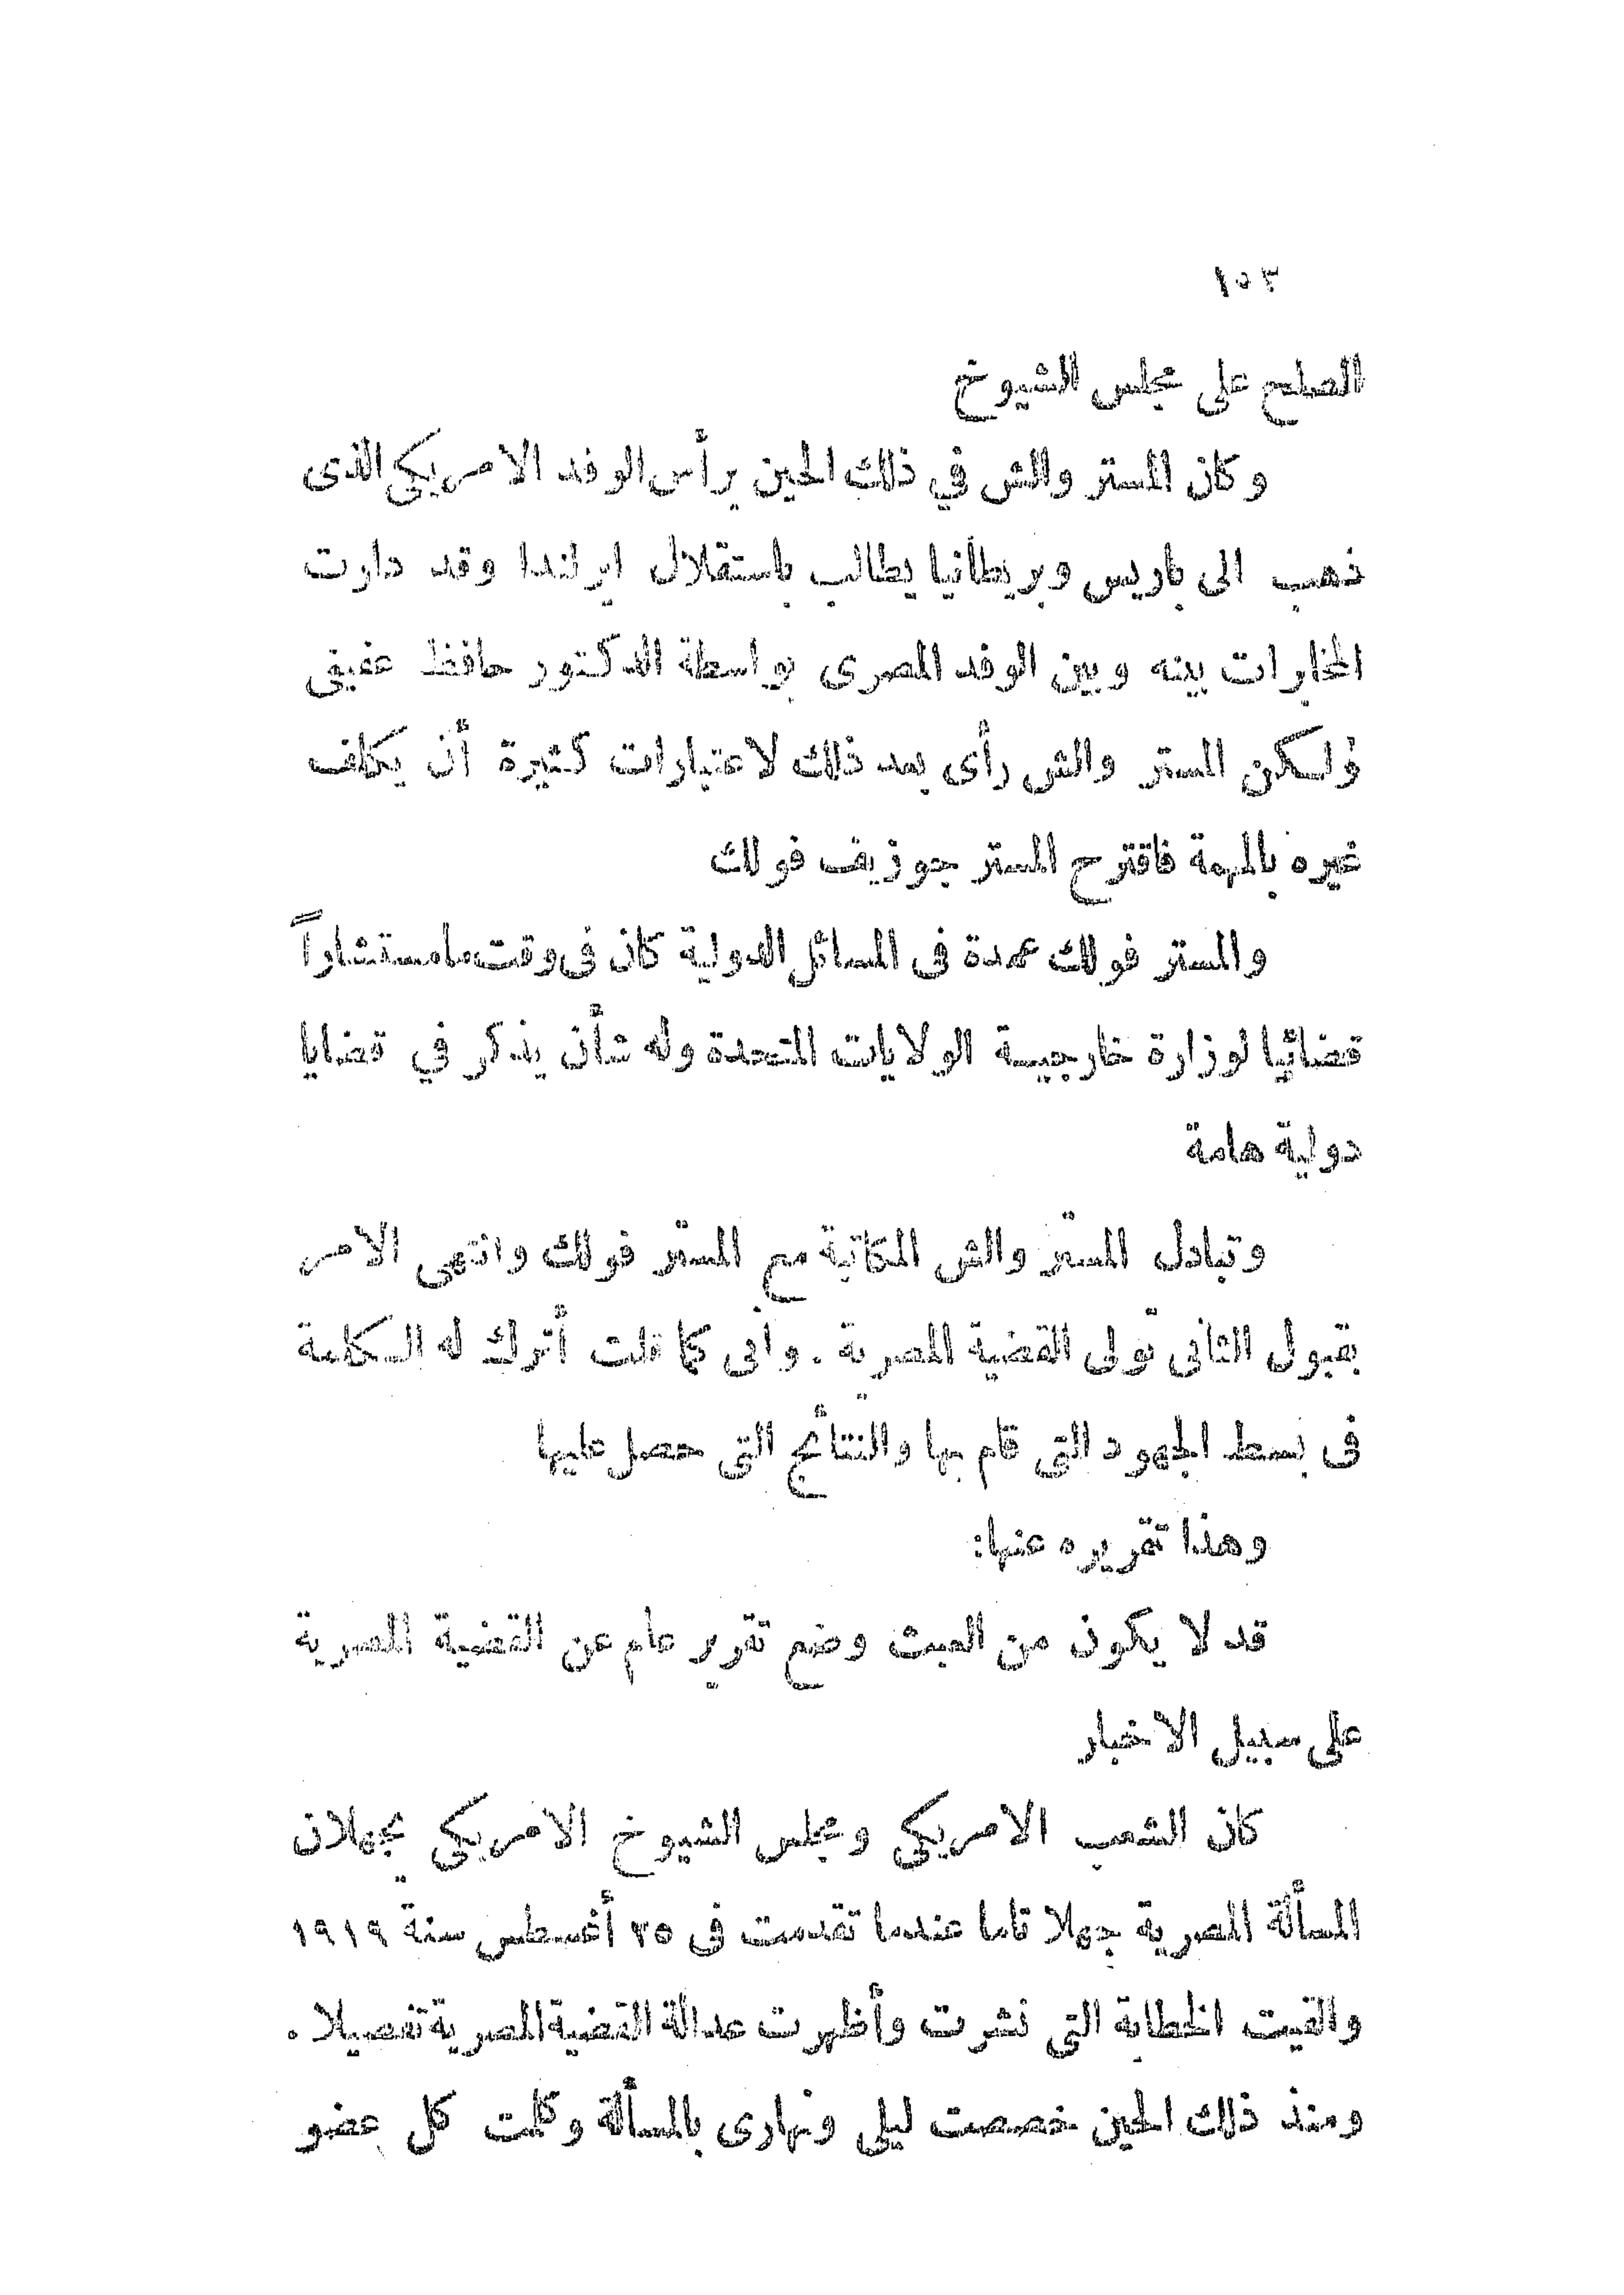 ١٥٣
الصلح على مجلس الشيوخ
وكان المستر والش في ذلك الحين يرأس الوفد الامريكي الذى
ذهب الى باريس وبريطانيا يطالب باستقلال ايرلندا وقد دارت
المخابرات بينه وبين الوفد المصرى بواسطة الدكتور حافظ عفيفى
ولكن المستر والش رأى بعد ذلك لاعتبارات كثيرة أن يكلف
غيره بالمهمة فاقترح المستر جوزيف فولك
والمستر فولك عمدة فى المسائل الدولية كان فى وقت ما مستشاراً
قضائيا لوزارة خارجية الولايات المتحدة وله شأن يذكر في قضايا
دولية هامة
وتبادل المستر والش المكاتبة مع المستر فولك وانتهى الامر
بقبول الثانى تولى القضية المصرية . وانى كما قلت أترك له الكلمة
فى بسط الجهود التى قام بها والنتائج التى حصل عليها
وهذا تقريره عنها:
قد لا يكون من العبث وضع تقرير عام عن القضية المصرية
على سبيل الاخبار
كان الشعب الامريكي ومجلس الشيوخ الامريكي يجهلان
المسألة المصرية جهلا تاما عندما تقدمت فى ٢٥ أغسطس سنة ١٩١٩
والقيت الخطابة التى نشرت وأظهرت عدالة القضية المصرية تفصيلا .
ومنذ ذلك الحين خصصت ليلى ونهارى بالمسألة وكلمت كل عضو